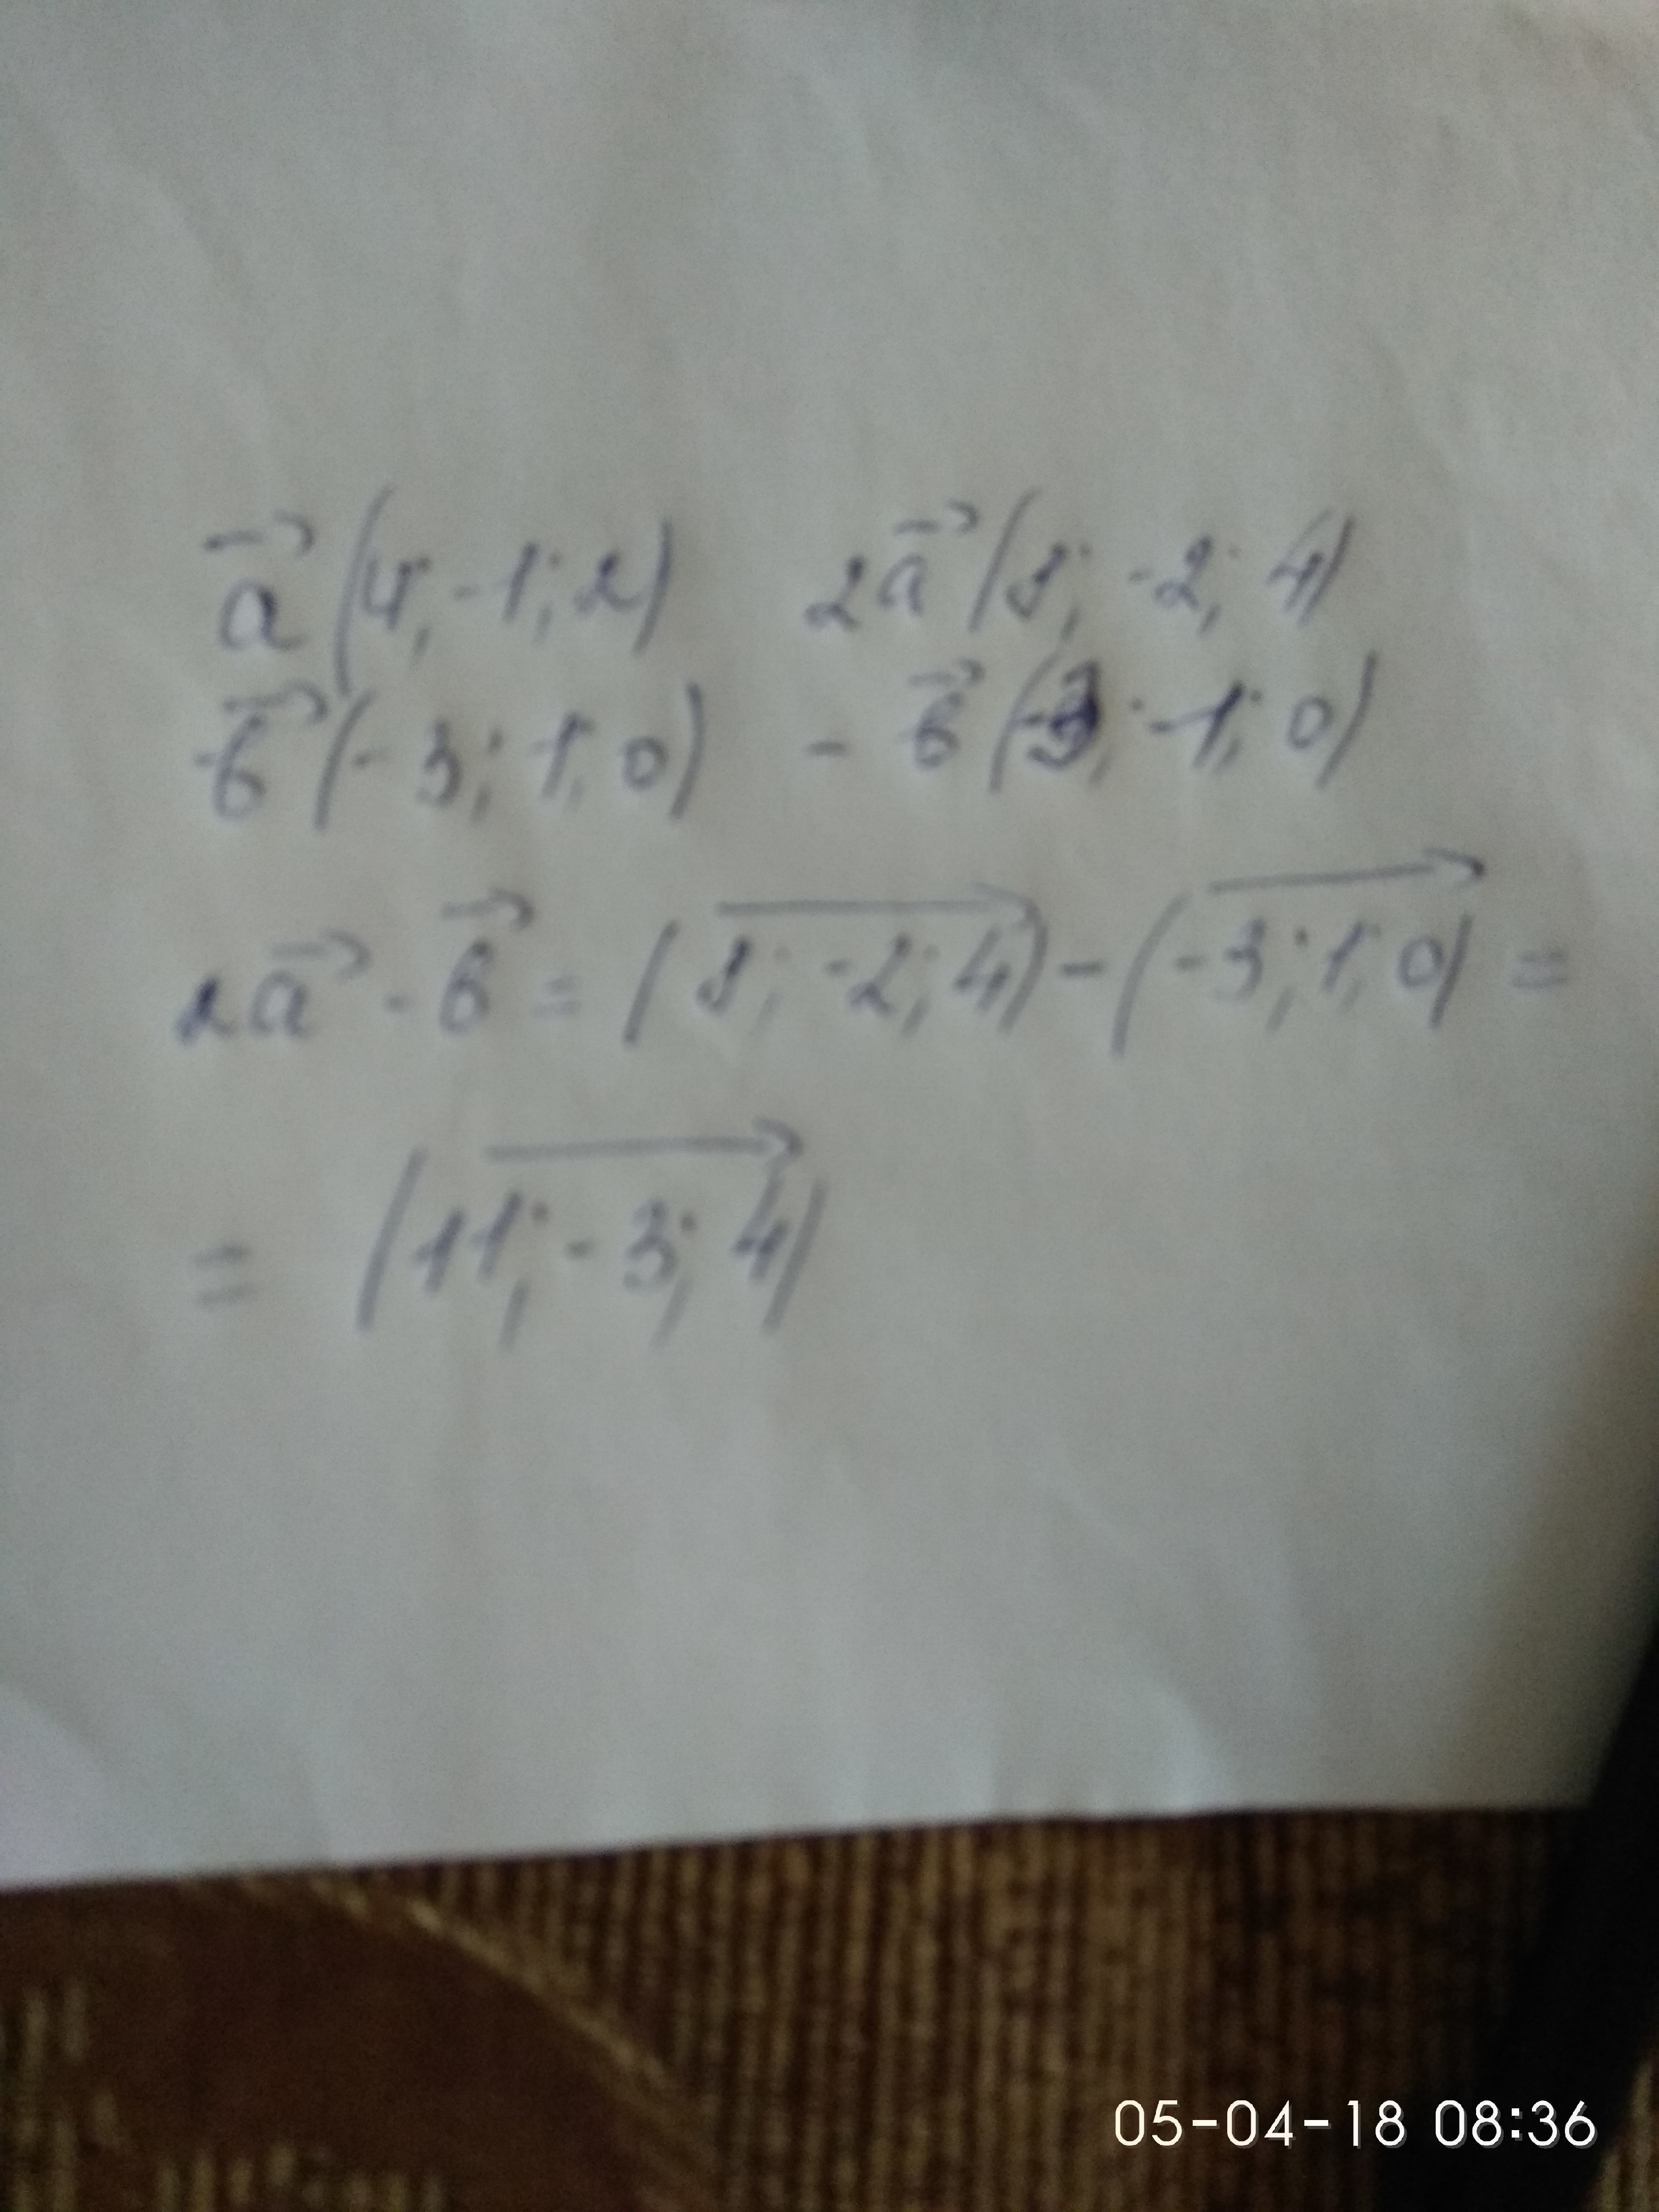 a⃗ (4; -1; 2) 2a⃗ (8; -2; 4)
b⃗ (-3; 1; 0) - b⃗ (3; -1; 0)
2a⃗ - b⃗ = (8; -2; 4) - (-3; 1; 0) =
= (11; -3; 4)
05-04-18 08:36